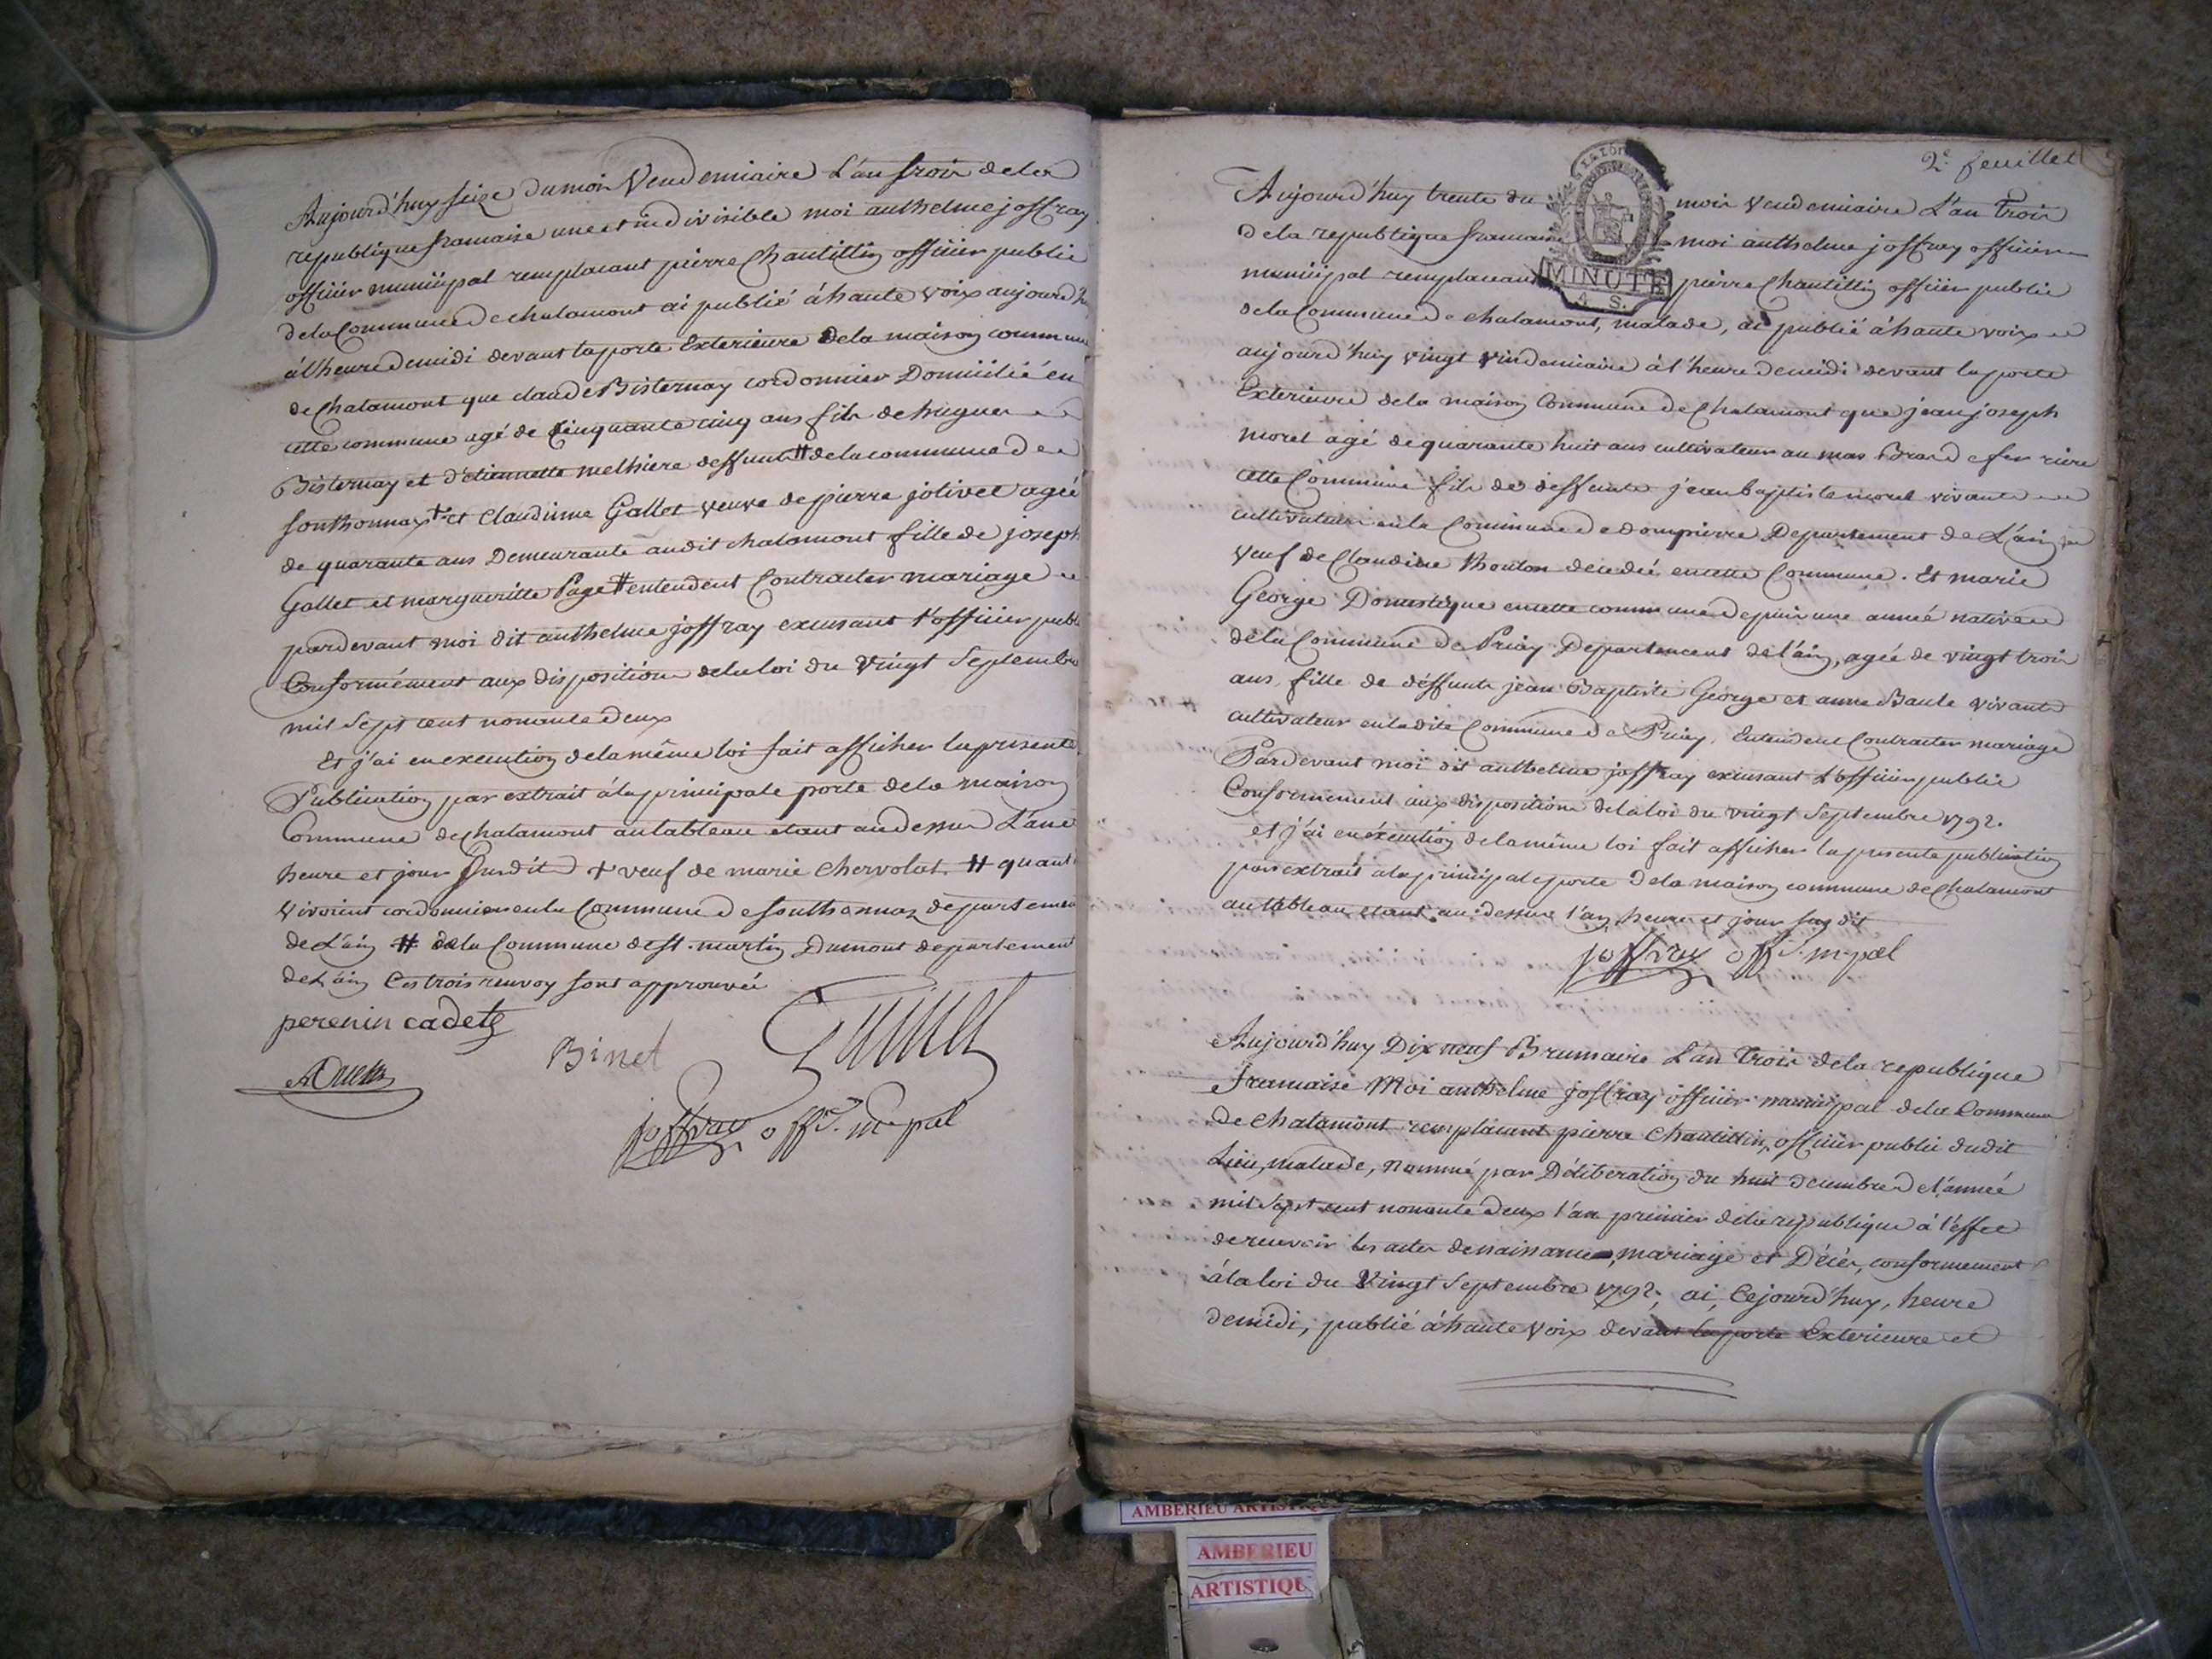 Aujourd'huy seize du mois Vendemiaire L'an trois de la
republique francaise une et indivisible moi anthelme joffray
officier municipal remplacant pierre Chantillin officier public
de la Commune de chalamont ai publié à haute voix aujourd'h
à l'heure de midi devant la porte Exterieure de la maison commune
de Chalamont que claude Bisternay cordonnier Domicilié en
cette commune agé de Cinquante cinq ans fils de hugues
Bisternay et d'étiennette melhiere deffunts # de la commune de
Sonthonnax + et Claudinne Gallet veuve de pierre jolivet agée
de quarante ans Demeurante audit chalamont fille de joseph
Gallet et margueritte Page # entendent Contracter mariage
pardevant moi dit anthelme joffray exersant l'officier publ
Conformément aux disposition de la loi du Vingt Septembre
mil Sept cent nonante deux
Et j'ai en execution de la même loi fait afficher la presente
Publication par extrait à la principale porte de la maison
Commune de chalamont au tableau etant au dessus L'an
heure et jour Susdit + veuf de marie Chervolat. # quant
Vivoient cordonnier en la Commune de Sonthonnax departemen
de L'ain # de la Commune de St. martin Dumont departement
de L'ain Ces trois renvoy sont approuvée
perenin cadet
Binet
joffray offr. m-pal
2e. feuillet
MINUTE
A. S.
Aujourd'huy trente du mois Vendemiaire L'an Trois
de la republique francaise moi anthelme joffray officier
municipal remplaceant pierre Chantillin officier public
de la Commune de chalamont, malade, ai publié à haute voix
aujourd'huy vingt vindemiaire à l'heure de midi devant la porte
Exterieure de la maison Commune de Chalamont que jean joseph
morel agé de quarante huit ans cultivateur au mas riere
cette Commune fils de deffunte jean baptiste morel vivante
cultivateur en la Commune de dompierre Departement de L'ain
veuf de Claudine Mouton decedée en cette Commune. Et marie
George Domestique en cette commune depuis une année native
de la Commune de Priay Departement de l'ain, agée de vingt trois
ans fille de deffunts jean Baptiste George et anne Baule vivant
cultivateur en la dite Commune de Priay, Entendent Contracter mariage
Pardevant moi dit anthelme joffray exersant L'officier public
Conformement aux disposition de la loi du vingt Septembre 1792.
et j'ai en éxecution de la même loi fait afficher la presente publication
par extrait a la principale porte de la maison commune de Chalamont
au tableau etant au dessus l'an, heure et jour sus dit
joffray offr. m-pal
Aujourd'huy Dix neuf Brumaire L'an Trois de la republique
francaise Moi anthelme joffray officier municipal de la Commune
de Chalamont remplacant pierre Chantillin, officier public dudit
Lieu, malade, nommé par Déliberation du huit decembre de l'année
mil Sept cent nonante deux l'an premier de la republique à l'effet
de recevoir les actes de naissance, mariage et Décés, conformement
à la loi du Vingt Septembre 1792, ai, Cejourd'huy, heure
de midi, publié à haute Voix devant la porte Exterieure et
AMBERIEU ARTISTIQU
AMBERIEU
ARTISTIQU